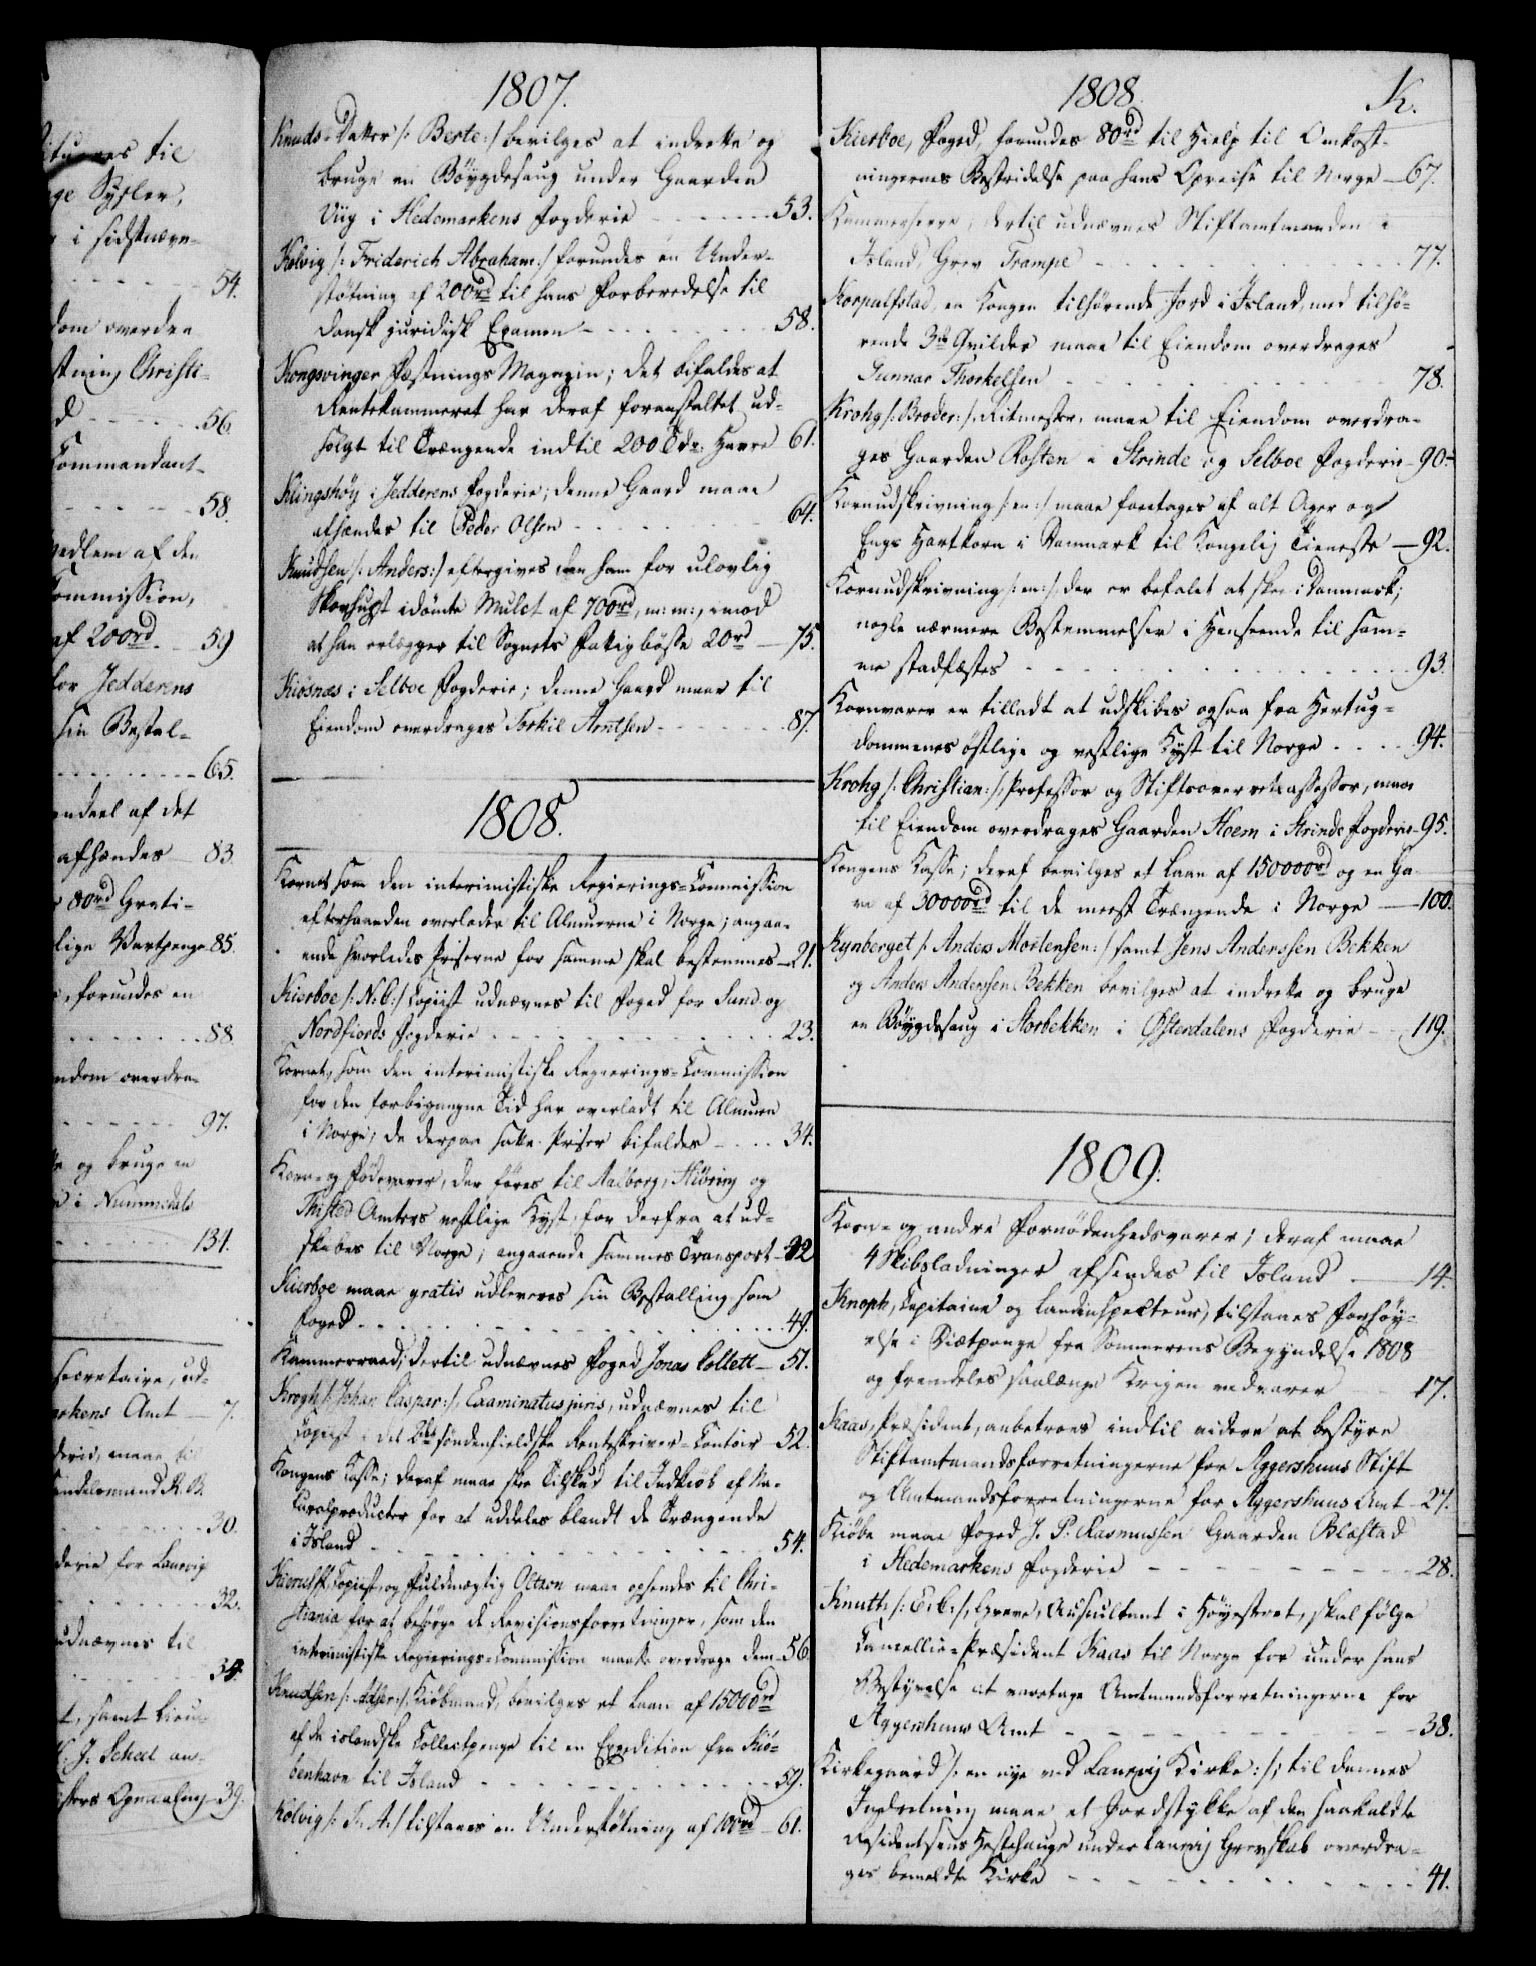 ituenes til
ge Sysler,
i sidstnævn-
54.
dom overdra
stning Christi-
d - - - - 56.
Commandant-
58.
edlem af den
Commission,
af 200rd. - 59
for Jedderens
sin Bestal-
65.
ndeel af det
afhændes - 83.
80rd Grati-
lige Vartpenge 85.
, forundes en
88.
ndom overdra-
97.
og bruge en
i Nummedals
131.
secretaire, ud-
rkens Amt - 7.
derie, maae til
endelsmand R. B.
30.
derie for Laurvig
32.
udnævnes til
34.
t, samt Lieu-
H. J. Scheel an-
Opmaaling 39.
1807.
Knuds-Datter /: Berte:/ bevilges at indrette og
bruge en Böygdesaug under Gaarden
Viig i Hedemarkens Fogderie - - - 53.
Kolvig /: Friderich Abraham:/ forundes en Under-
støtning af 200rd til hans Forberedelse til
dansk juridisk Examen - - - 58.
Kongsvinger Fæstnings Magazin; det bifaldes at
Rentekammeret har deraf foranstaltet ud-
solgt til Trængende indtil 200 Tdr. Havre 61.
Klingshöy i Jedderens Fogderie; denne Gaard maae
afhændes til Peder Olsen - - - 64.
Knudsen /: Anders:/ eftergives den ham for ulovlig
Skovhugst idömte Mulct af 700rd, m: m:, imod
at han erlægger til Sognets Fattigbösse 20rd - 75.
Kiösnæs i Selboe Fogderie; denne Gaard maae til
Eiendom overdrages Torkil Arntsen - - - 87.
1808.
Kornet som den interimistiske Regierings-Commission
efterhaanden overlader til Almuerne i Norge; angaa-
ende hvorledes Priserne for samme skal bestemmes - 21.
Kierboe /: N: C:/ Copiist udnævnes til Foged for Sund- og
Nordfiords Fogderie - - - 23.
Kornet, som den interimistiske Regierings-Commission
for den forbigangne Tid har overladt til Almuen
i Norge; de derpaa satte Priser bifaldes - - - 34.
Korn- og Födevarer, der föres til Aalborg, Hiöring og
Thisted Amters vestlige Kyst, for derfra at ud-
skibes til Norge; angaaende sammes Transport - 42
Kierboe maae gratis udleveres sin Bestalling som
Foged - - - 49.
Kammerraad; dertil udnævnes Foged Jonas Collett - 51.
Krogh /: Johan Caspar:/, Examinatus juris, udnævnes til
Copiist i det 2det söndenfieldske Rentskriver-Contoir - 52.
Kongens Casse; deraf maae skee Tilskud til Indkiöb af Na-
turalproducter for at uddeles blandt de Trængende
i Island - - - 54.
Kierulff, Copiist, og Fuldmægtig Oltzon maae opsendes til Chri-
stiania for at besörge de Revisionsforretninger, som den
interimistiske Regierings-Commission maatte overdrage dem - 56.
Knudtsen /: Adser:/, Kiöbmand, bevilges et Laan af 15000rd
af de islandske Collectpenge til en Expedition fra Kiö-
benhavn til Island - - - 59.
Kolvig /: F. A:/ tilstaaes en Understøtning af 100rd - 61.
1808. K.
Kierboe, Foged, forundes 80rd til Hielp til Omkost-
ningernes Bestridelse paa hans Opreise til Norge - 67.
Kammerherre, dertil udnævnes Stiftamtmanden i
Island, Grev Trampe - - - 77.
Korpulfstad, en Kongen tilhörende Jord i Island, med tilhö-
rende 3de Qvilder maae til Eiendom overdrages
Gunnar Thorkelsen - - - 78.
Krohg /: Broder:/, Ritmester, maae til Eiendom overdra-
ges Gaarden Rosten i Strinde og Selboe Fogderie - 90.
Kornudskrivning /: en:/ maae foretages af alt Ager og
Engs Hartkorn i Danmark til Kongelig Tieneste - 92.
Kornudskrivning /: en:/, der er befalet at skee i Danmark;
nogle nærmere Bestemmelser i Henseende til sam-
me stadfæstes - - - 93.
Kornvarer er tilladt at udskibes ogsaa fra Hertug-
dommenes östlige og vestlige Kyst til Norge - - - 94.
Krohg /: Christian:/, Professor og Stiftsoverretsassessor, maae
til Eiendom overdrages Gaarden Hoem i Strinde Fogderie - 95.
Kongens Kasse; deraf bevilges et Laan af 150000rd og en Ga-
ve af 30000rd til de meest Trængende i Norge - 100.
Kynberget /: Anders Mortensen:/ samt Jens Anderssen Bekken
og Anders Anderssen Bekken bevilges at indrette og bruge
en Böygdesaug i Storbekken i Østerdalens Fogderie - 119.
1809.
Korn- og andre Fornödenhedsvarer; deraf maae
4 Skibsladninger afsendes til Island - 14.
Knoph, Capitaine og Landinspecteur, tilstaaes Forhöy-
else i Diætpenge fra Sommerens Begyndelse 1808
og fremdeles saalænge Krigen vedvarer - 17.
Kaas, Præsident, anbetroes indtil videre at bestyre
Stiftamtmandsforretningerne for Aggershuus Stift
og Amtmandsforretningerne for Aggershuus Amt - 27.
Kiöbe maae Foged J. P. Rasmussen Gaarden Blæstad
i Hedemarkens Fogderie - - - 28.
Knuth /: Erik:/, Greve, Auscultant i Höyesteret, skal fölge
Cancellie-Præsident Kaas til Norge for under hans
Bestyrelse at varetage Amtmandsforretningerne for
Aggershuus Amt - - - 38.
Kirkegaard /: en nye ved Laurvig Kirke:/; til dennes
Indretning maae et Jordstykke af den saakaldte
Residentsens Hestehauge under Laurvig Grevskab overdra-
ges bemeldte Kirke - - - 41.